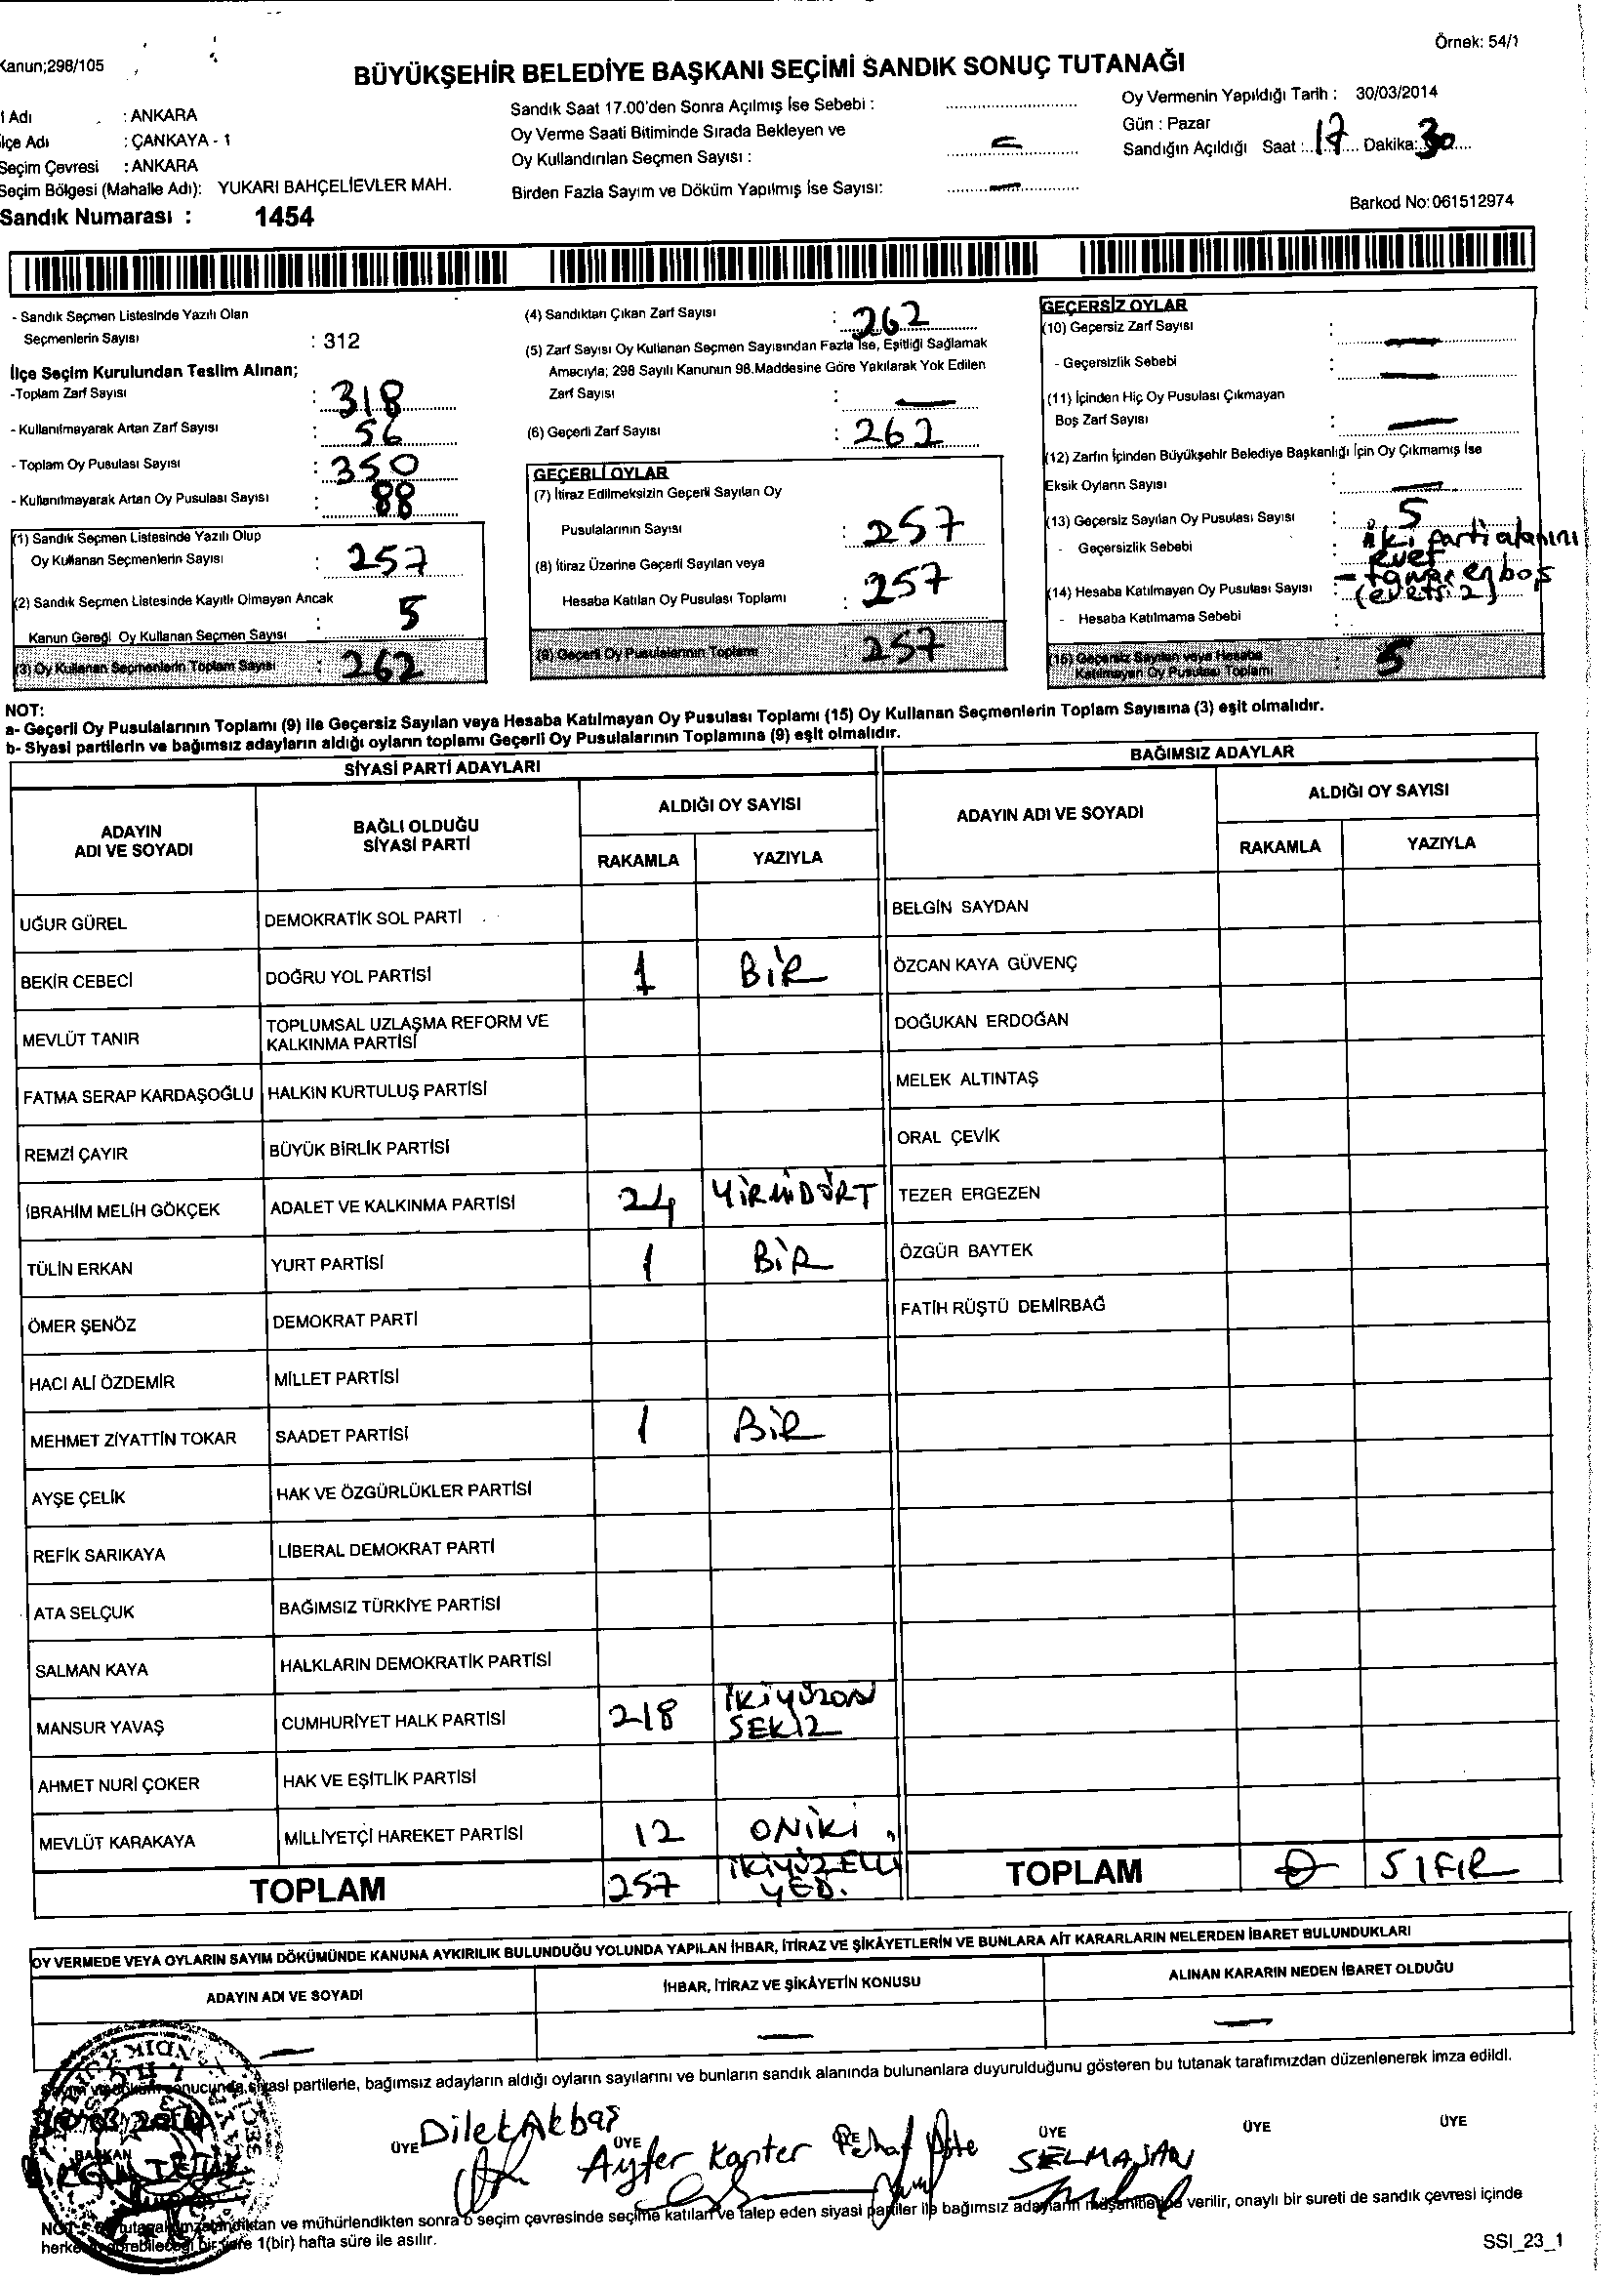 Örnek: 54/1
Kanun;298/105
BÜYÜKŞEHİR BELEDİYE BAŞKANI SEÇİMİ SANDIK SONUÇ TUTANAĞI
l Adı : ANKARA
İlçe Adı : ÇANKAYA - 1
Seçim Çevresi : ANKARA
Seçim Bölgesi (Mahalle Adı): YUKARI BAHÇELİEVLER MAH.
Sandık Numarası : 1454
Sandık Saat 17.00'den Sonra Açılmış İse Sebebi :
Oy Verme Saati Bitiminde Sırada Bekleyen ve
Oy Kullandırılan Seçmen Sayısı : —
Birden Fazla Sayım ve Döküm Yapılmış İse Sayısı: —
Oy Vermenin Yapıldığı Tarih : 30/03/2014
Gün : Pazar
Sandığın Açıldığı Saat : 17 Dakika: 30
Barkod No: 061512974
- Sandık Seçmen Listesinde Yazılı Olan
Seçmenlerin Sayısı : 312
İlçe Seçim Kurulundan Teslim Alınan;
-Toplam Zarf Sayısı : 318
- Kullanılmayarak Artan Zarf Sayısı : 56
- Toplam Oy Pusulası Sayısı : 350
- Kullanılmayarak Artan Oy Pusulası Sayısı : 88
(1) Sandık Seçmen Listesinde Yazılı Olup
Oy Kullanan Seçmenlerin Sayısı : 257
(2) Sandık Seçmen Listesinde Kayıtlı Olmayan Ancak
Kanun Gereği Oy Kullanan Seçmen Sayısı : 5
(3) Oy Kullanan Seçmenlerin Toplam Sayısı : 262
(4) Sandıktan Çıkan Zarf Sayısı : 262
(5) Zarf Sayısı Oy Kullanan Seçmen Sayısından Fazla İse, Eşitliği Sağlamak
Amacıyla; 298 Sayılı Kanunun 98.Maddesine Göre Yakılarak Yok Edilen
Zarf Sayısı : —
(6) Geçerli Zarf Sayısı : 262
GEÇERLİ OYLAR
(7) İtiraz Edilmeksizin Geçerli Sayılan Oy
Pusulalarının Sayısı : 257
(8) İtiraz Üzerine Geçerli Sayılan veya
Hesaba Katılan Oy Pusulası Toplamı : 257
(9) Geçerli Oy Pusulalarının Toplamı 257
GEÇERSİZ OYLAR
(10) Geçersiz Zarf Sayısı : —
- Geçersizlik Sebebi : —
(11) İçinden Hiç Oy Pusulası Çıkmayan
Boş Zarf Sayısı : —
(12) Zarfın İçinden Büyükşehir Belediye Başkanlığı İçin Oy Çıkmamış İse
Eksik Oyların Sayısı : —
(13) Geçersiz Sayılan Oy Pusulası Sayısı : 5
- Geçersizlik Sebebi : iki parti alanını
evet
(14) Hesaba Katılmayan Oy Pusulası Sayısı : boş
(evetsiz)
- Hesaba Katılmama Sebebi :
(15) Geçersiz Sayılan veya Hesaba
Katılmayan Oy Pusulası Toplamı : 5
NOT:
a- Geçerli Oy Pusulalarının Toplamı (9) ile Geçersiz Sayılan veya Hesaba Katılmayan Oy Pusulası Toplamı (15) Oy Kullanan Seçmenlerin Toplam Sayısına (3) eşit olmalıdır.
b- Siyasi partilerin ve bağımsız adayların aldığı oyların toplamı Geçerli Oy Pusulalarının Toplamına (9) eşit olmalıdır.
SİYASİ PARTİ ADAYLARI
ADAYIN
ADI VE SOYADI
BAĞLI OLDUĞU
SİYASİ PARTİ
ALDIĞI OY SAYISI
RAKAMLA YAZIYLA
UĞUR GÜREL DEMOKRATİK SOL PARTİ
BEKİR CEBECİ DOĞRU YOL PARTİSİ 1 BİR
MEVLÜT TANIR TOPLUMSAL UZLAŞMA REFORM VE
KALKINMA PARTİSİ
FATMA SERAP KARDAŞOĞLU HALKIN KURTULUŞ PARTİSİ
REMZİ ÇAYIR BÜYÜK BİRLİK PARTİSİ
İBRAHİM MELİH GÖKÇEK ADALET VE KALKINMA PARTİSİ 24 YİRMİDÖRT
TÜLİN ERKAN YURT PARTİSİ 1 BİR
ÖMER ŞENÖZ DEMOKRAT PARTİ
HACI ALİ ÖZDEMİR MİLLET PARTİSİ
MEHMET ZİYATTİN TOKAR SAADET PARTİSİ 1 BİR
AYŞE ÇELİK HAK VE ÖZGÜRLÜKLER PARTİSİ
REFİK SARIKAYA LİBERAL DEMOKRAT PARTİ
ATA SELÇUK BAĞIMSIZ TÜRKİYE PARTİSİ
SALMAN KAYA HALKLARIN DEMOKRATİK PARTİSİ
MANSUR YAVAŞ CUMHURİYET HALK PARTİSİ 218 İKİYÜZON
SEKİZ
AHMET NURİ ÇOKER HAK VE EŞİTLİK PARTİSİ
MEVLÜT KARAKAYA MİLLİYETÇİ HAREKET PARTİSİ 12 ONİKİ
TOPLAM 257 İKİYÜZELLİ
YEDİ
BAĞIMSIZ ADAYLAR
ADAYIN ADI VE SOYADI
ALDIĞI OY SAYISI
RAKAMLA YAZIYLA
BELGİN SAYDAN
ÖZCAN KAYA GÜVENÇ
DOĞUKAN ERDOĞAN
MELEK ALTINTAŞ
ORAL ÇEVİK
TEZER ERGEZEN
ÖZGÜR BAYTEK
FATİH RÜŞTÜ DEMİRBAĞ
TOPLAM 0 SIFIR
OY VERMEDE VEYA OYLARIN SAYIM DÖKÜMÜNDE KANUNA AYKIRILIK BULUNDUĞU YOLUNDA YAPILAN İHBAR, İTİRAZ VE ŞİKÂYETLERİN VE BUNLARA AİT KARARLARIN NELERDEN İBARET BULUNDUKLARI
ADAYIN ADI VE SOYADI İHBAR, İTİRAZ VE ŞİKÂYETİN KONUSU ALINAN KARARIN NEDEN İBARET OLDUĞU
— — —
sonucunda siyasi partilerle, bağımsız adayların aldığı oyların sayılarını ve bunların sandık alanında bulunanlara duyurulduğunu gösteren bu tutanak tarafımızdan düzenlenerek imza edildi.
BAŞKAN
ÜYE ÜYE ÜYE ÜYE ÜYE
Dilek Akbaş
Ayfer Kanter
SELMA ŞAN
NOT : tutanak imzalandıktan ve mühürlendikten sonra o seçim çevresinde seçime katılan ve talep eden siyasi partiler ile bağımsız adayların müşahitlerine verilir, onaylı bir sureti de sandık çevresi içinde
herkesin görebileceği bir yere 1(bir) hafta süre ile asılır.
SSI_23_1